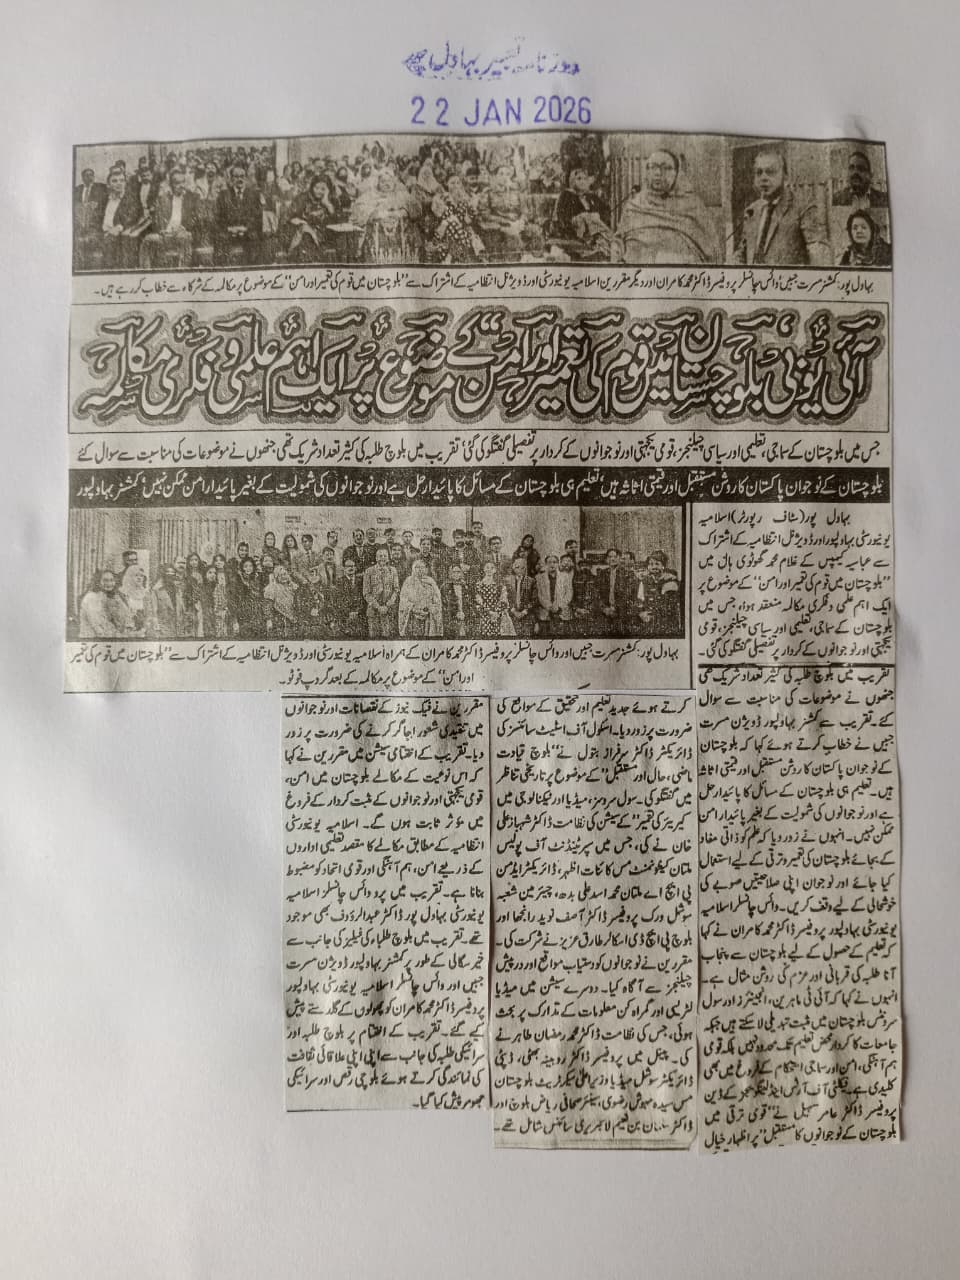 روزنامہ تعمیر بہاولپور
22 JAN 2026
بہاول پور: کمشنر مسرت جبیں، وائس چانسلر پروفیسر ڈاکٹر محمد کامران اور دیگر مقررین اسلامیہ یونیورسٹی اور ڈویژنل انتظامیہ کے اشتراک سے ”بلوچستان میں قوم کی تعمیر اور امن“ کے موضوع پر مکالمہ کے شرکاء سے خطاب کر رہے ہیں۔
آئی یو بی ”بلوچستان میں قوم کی تعمیر اور امن“ کے موضوع پر ایک اہم علمی و فکری مکالمہ
جس میں بلوچستان کے سماجی، تعلیمی اور سیاسی چیلنجز، قومی یکجہتی اور نوجوانوں کے کردار پر تفصیلی گفتگو کی گئی، تقریب میں بلوچ طلبہ کی کثیر تعداد شریک تھی جنھوں نے موضوعات کی مناسبت سے سوال کئے
بلوچستان کے نوجوان پاکستان کا روشن مستقبل اور قیمتی اثاثہ ہیں، تعلیم ہی بلوچستان کے مسائل کا پائیدار حل ہے اور نوجوانوں کی شمولیت کے بغیر پائیدار امن ممکن نہیں، کمشنر بہاولپور
بہاول پور: کمشنر مسرت جبیں اور وائس چانسلر پروفیسر ڈاکٹر محمد کامران کے ہمراہ اسلامیہ یونیورسٹی اور ڈویژنل انتظامیہ کے اشتراک سے ”بلوچستان میں قوم کی تعمیر
اور امن“ کے موضوع پر مکالمہ کے بعد گروپ فوٹو۔
بہاول پور (سٹاف رپورٹر) اسلامیہ
یونیورسٹی بہاولپور اور ڈویژنل انتظامیہ کے اشتراک
سے عباسیہ کیمپس کے غلام محمد گھوٹوی ہال میں
”بلوچستان میں قوم کی تعمیر اور امن“ کے موضوع پر
ایک اہم علمی و فکری مکالمہ منعقد ہوا، جس میں
بلوچستان کے سماجی، تعلیمی اور سیاسی چیلنجز، قومی
یکجہتی اور نوجوانوں کے کردار پر تفصیلی گفتگو کی گئی۔
تقریب میں بلوچ طلبہ کی کثیر تعداد شریک تھی
جنھوں نے موضوعات کی مناسبت سے سوال
کئے۔ تقریب سے کمشنر بہاولپور ڈویژن مسرت
جبیں نے خطاب کرتے ہوئے کہا کہ بلوچستان
کے نوجوان پاکستان کا روشن مستقبل اور قیمتی اثاثہ
ہیں۔ تعلیم ہی بلوچستان کے مسائل کا پائیدار حل
ہے اور نوجوانوں کی شمولیت کے بغیر پائیدار امن
ممکن نہیں۔ انہوں نے زور دیا کہ علم کو ذاتی مفاد
کے بجائے بلوچستان کی تعمیر و ترقی کے لیے استعمال
کیا جائے اور نوجوان اپنی صلاحیتیں صوبے کی
خوشحالی کے لیے وقف کریں۔ وائس چانسلر اسلامیہ
یونیورسٹی بہاولپور پروفیسر ڈاکٹر محمد کامران نے کہا
کہ تعلیم کے حصول کے لیے بلوچستان سے پنجاب
آنا طلبہ کی قربانی اور عزم کی روشن مثال ہے۔
انہوں نے کہا کہ آئی ٹی ماہرین، انجینئرز اور سول
سرونٹس بلوچستان میں مثبت تبدیلی لا سکتے ہیں جبکہ
جامعات کا کردار محض تعلیم تک محدود نہیں بلکہ قومی
ہم آہنگی، امن اور سماجی استحکام کے فروغ میں بھی
کلیدی ہے۔ فیکلٹی آف آرٹس اینڈ لینگویجز کے ڈین
پروفیسر ڈاکٹر عامر سہیل نے ”قومی ترقی میں
بلوچستان کے نوجوانوں کا مستقبل“ پر اظہار خیال
کرتے ہوئے جدید تعلیم اور تحقیق کے مواقع کی
ضرورت پر زور دیا۔ اسکول آف اسٹیٹ سائنسز کی
ڈائریکٹر ڈاکٹر سرفراز بتول نے ”بلوچ قیادت
ماضی، حال اور مستقبل“ کے موضوع پر تاریخی تناظر
میں گفتگو کی۔ سول سروسز، میڈیا اور ٹیکنالوجی میں
کیریئر کی تعمیر“ کے سیشن کی نظامت ڈاکٹر شہباز علی
خان نے کی، جس میں سپرنٹینڈنٹ آف پولیس
ملتان کینٹونمنٹ مس کائنات اظہر، ڈائریکٹر ایڈمن
پی ایچ اے ملتان محمد اسد علی بدھ، چیئرمین شعبہ
سوشل ورک پروفیسر ڈاکٹر آصف نوید رانجھا اور
بلوچ پی ایچ ڈی اسکالر طارق عزیز نے شرکت کی۔
مقررین نے نوجوانوں کو دستیاب مواقع اور درپیش
چیلنجز سے آگاہ کیا۔ دوسرے سیشن میں میڈیا
لٹریسی اور گمراہ کن معلومات کے تدارک پر بحث
ہوئی، جس کی نظامت ڈاکٹر محمد رمضان طاہر نے
کی۔ پینل میں پروفیسر ڈاکٹر روبینہ بھٹی، ڈپٹی
ڈائریکٹر سوشل میڈیا وزیر اعلیٰ سیکرٹریٹ بلوچستان
مس سیدہ مہوش رضوی، سینئر صحافی ریاض بلوچ اور
ڈاکٹر سلمان بن نعیم لائبریری سائنس شامل تھے۔
مقررین نے فیک نیوز کے نقصانات اور نوجوانوں
میں تنقیدی شعور اجاگر کرنے کی ضرورت پر زور
دیا۔ تقریب کے اختتامی سیشن میں مقررین نے کہا
کہ اس نوعیت کے مکالمے بلوچستان میں امن،
قومی یکجہتی اور نوجوانوں کے مثبت کردار کے فروغ
میں مؤثر ثابت ہوں گے۔ اسلامیہ یونیورسٹی
انتظامیہ کے مطابق مکالمے کا مقصد تعلیمی اداروں
کے ذریعے امن، ہم آہنگی اور قومی اتحاد کو مضبوط
بنانا ہے۔ تقریب میں پرو وائس چانسلر اسلامیہ
یونیورسٹی بہاول پور ڈاکٹر عبدالرؤف بھی موجود
تھے۔ تقریب میں بلوچ طلباء کی فیلیز کی جانب سے
خیر سگالی کے طور پر کمشنر بہاولپور ڈویژن مسرت
جبیں اور وائس چانسلر اسلامیہ یونیورسٹی بہاولپور
پروفیسر ڈاکٹر محمد کامران کو پھولوں کے گلدستے پیش
کیے گئے۔ تقریب کے اختتام پر بلوچ طلبہ اور
سرائیکی طلبہ کی جانب سے اپنی اپنی علاقائی ثقافت
کی نمائندگی کرتے ہوئے بلوچی رقص اور سرائیکی
جھومر پیش کیا گیا۔